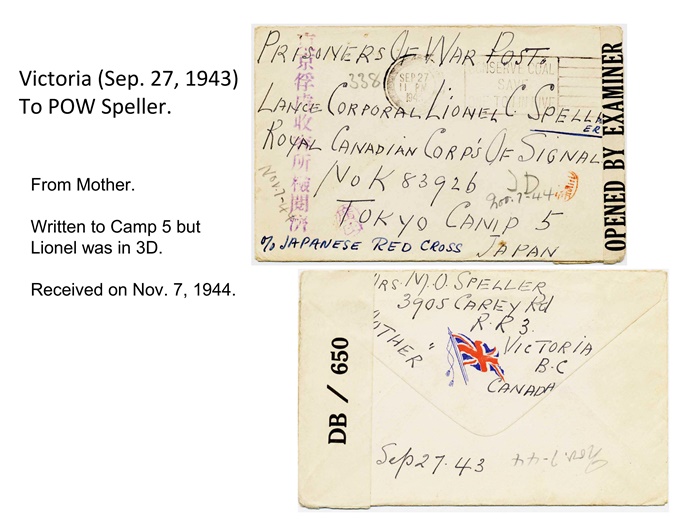 Victoria (Sep. 27, 1943)
To POW Speller.
From Mother.
Written to Camp 5 but
Lionel was in 3D.
Received on Nov. 7, 1944.
PRISONERS OF WAR POST.
338
SEP 27
11 PM
CONSERVE COAL
SAVE
LANCE CORPORAL LIONEL C SPELLER
ROYAL CANADIAN CORP'S OF SIGNAL
No K 83926
3D
Nov. 7-44
TOKYO CAMP 5
c/o JAPANESE RED CROSS JAPAN
Nov. 7-44
東京俘虜收容所檢閲濟
OPENED BY EXAMINER
MRS. M. O. SPELLER
3905 CAREY Rd
R.R 3.
VICTORIA
B.C
CANADA
"MOTHER"
DB / 650
Sep 27. 43
Nov. 7-44